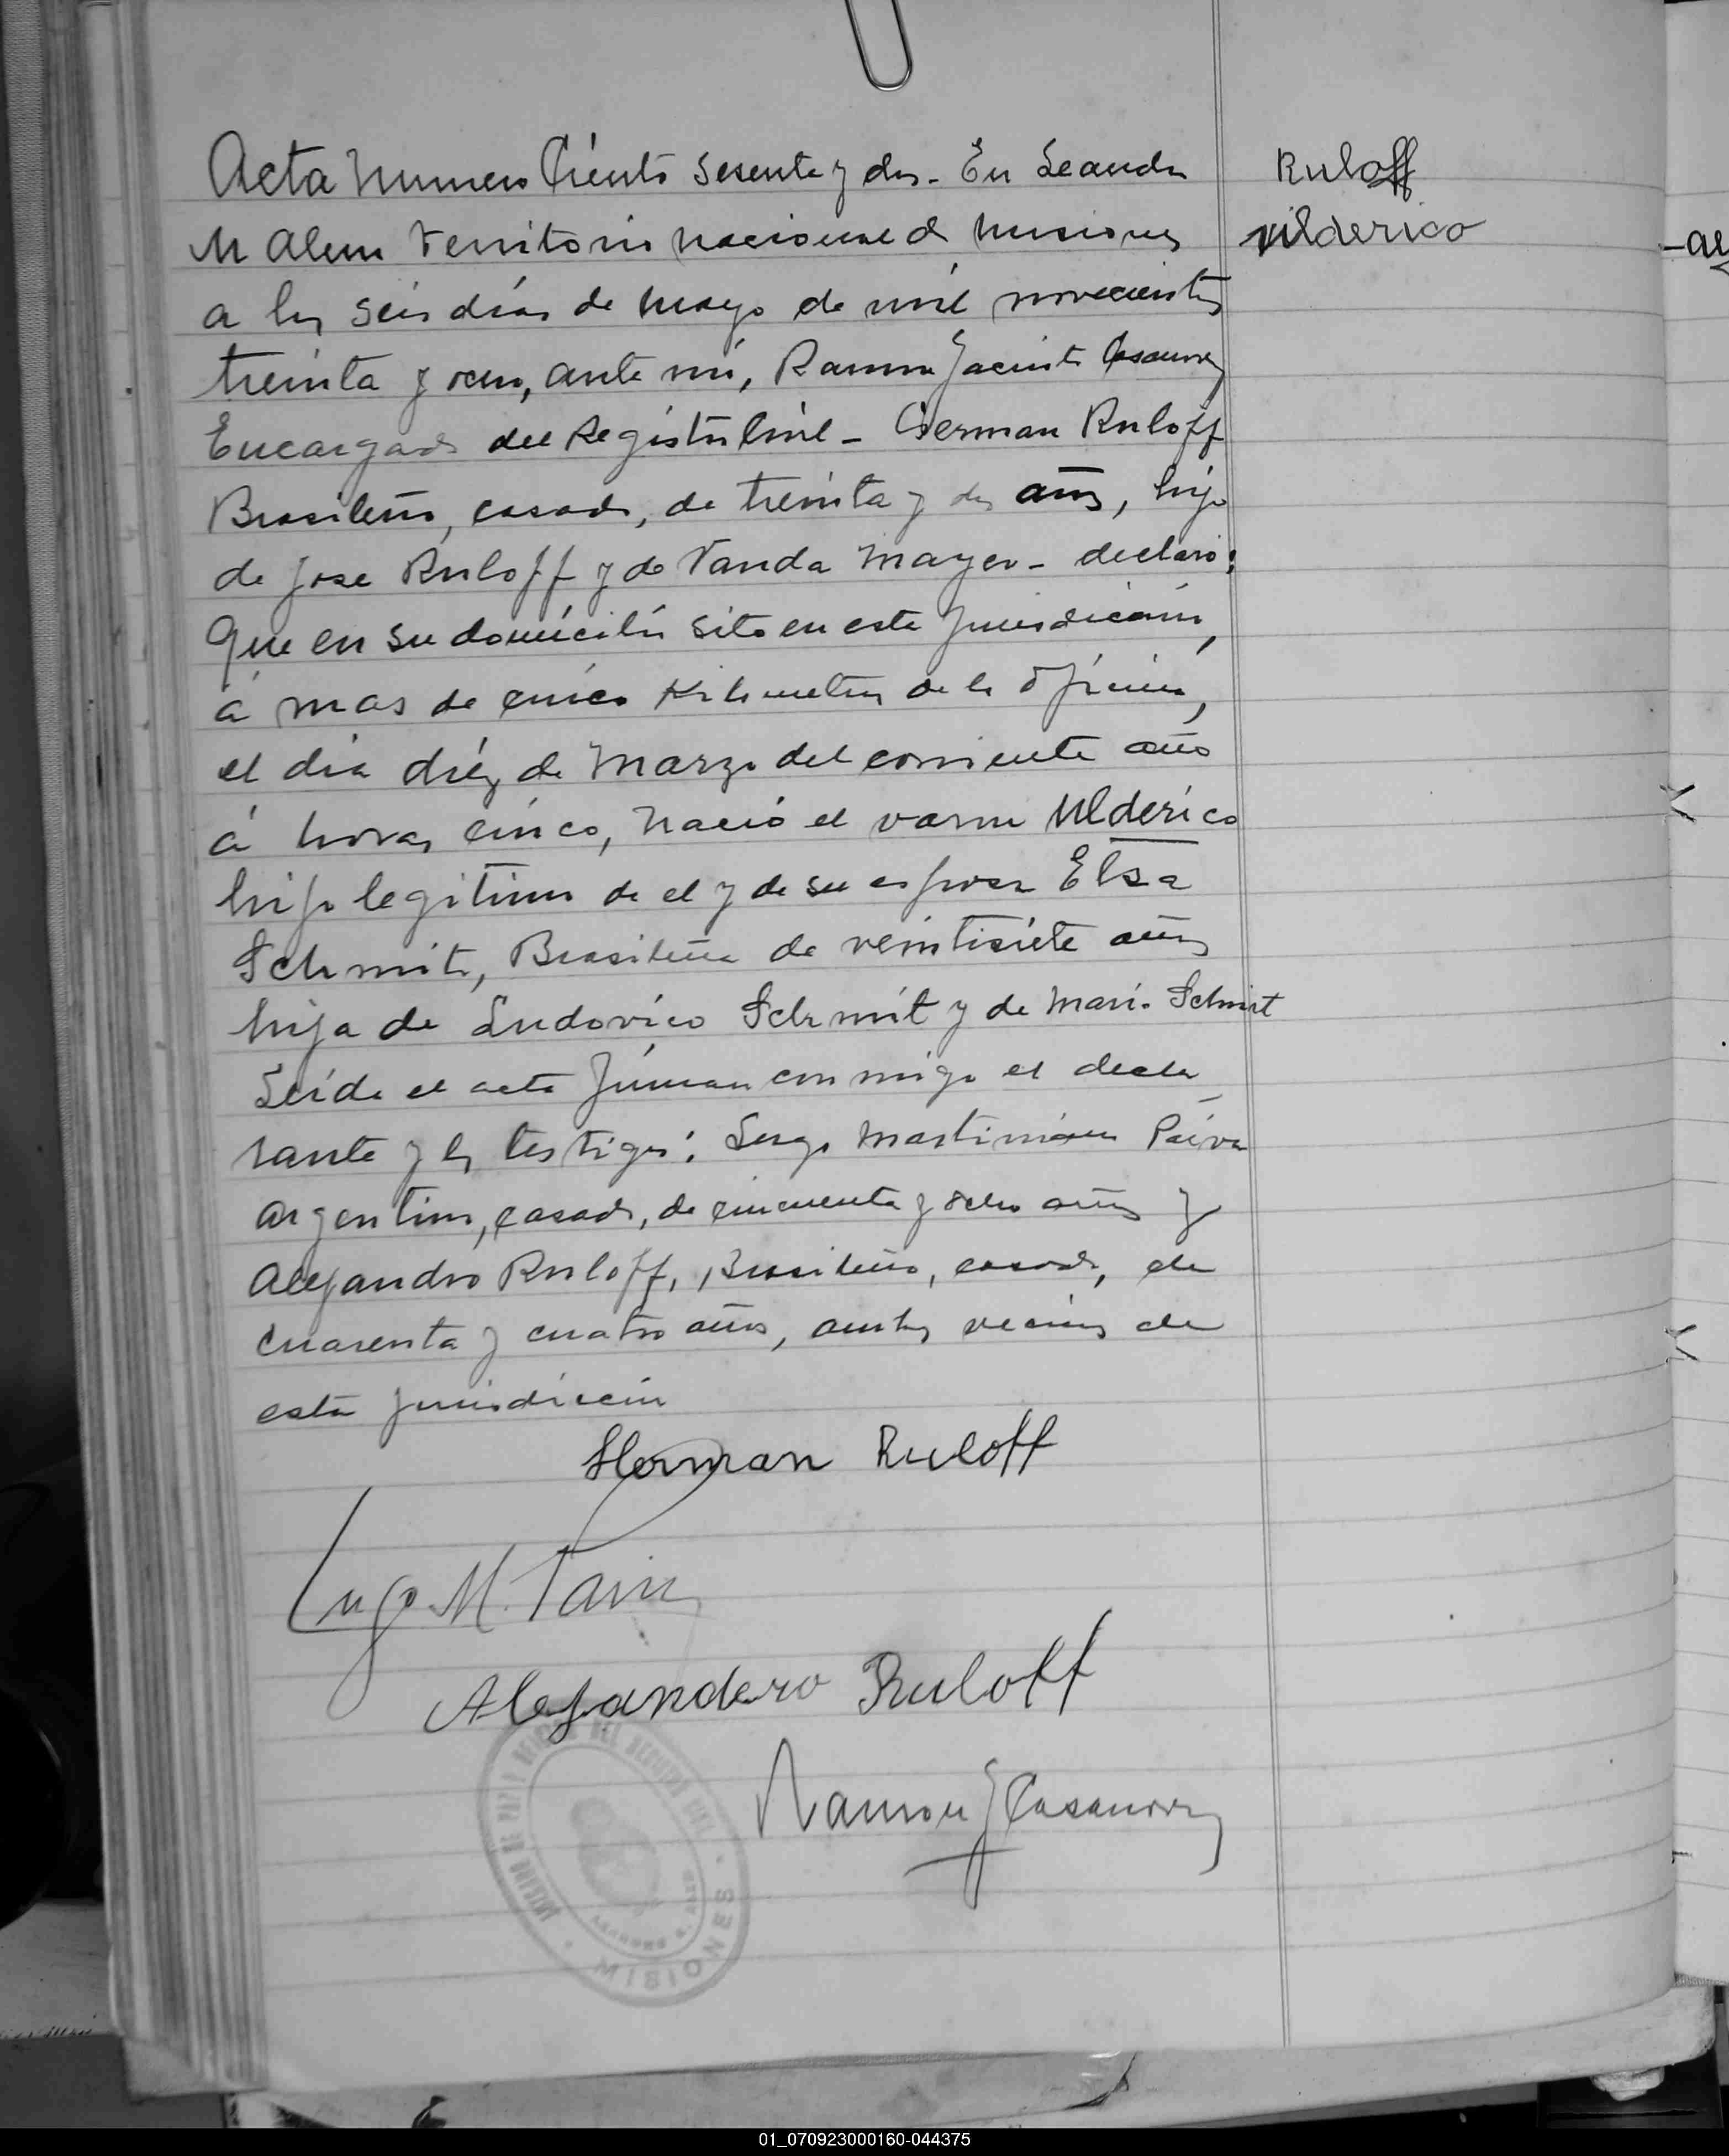 Acta Numero Ciento Sesenta y dos - En Leandro
N Alem Territorio nacional de Misiones
a los seis días de Mayo de mil novecientos
treinta y ocho, ante mi, Ramon Jacinto Casanova
Encargado del Registro Civil - German Ruloff
Brasileño, casado, de treinta y dos años, hijo
de Jose Ruloff y de Vanda Mayer - declaró:
Que en su domicilio sito en esta Jurisdicción,
á mas de cinco Kilometros de la Oficina,
el día diéz de Marzo del corriente año
á horas cinco, Nació el varon Ulderico
hijo legitimo de el y de su esposa Elsa
Schmit, Brasileña de veintisiete años
hija de Ludovico Schmit y de Maria Schmit
Leída el acta firman conmigo el decla
rante y los testigos: Lugo Martiniano Paiva
argentino, casado, de cincuenta y ocho años y
Alejandro Ruloff, Brasileño, casado, de
cuarenta y cuatro años, ambos vecinos de
esta jurisdicción
Ruloff
Ulderico
Herman Ruloff
Lugo M. Paiva
Alejandero Ruloff
Ramon J Casanova
MISIONES
01_070923000160-044375